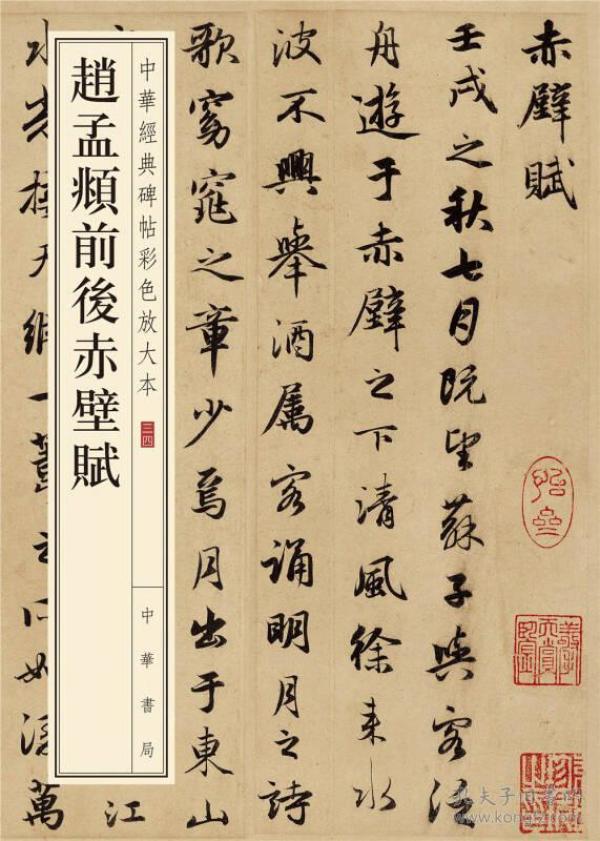 赤壁賦
壬戌之秋七月既望蘇子與客泛
舟遊于赤壁之下清風徐来水
波不興舉酒属客誦明月之詩
歌窈窕之章少焉月出于東山
江
水光接天縱一葦之所如淩萬
中華經典碑帖彩色放大本
三四
趙孟頫前後赤壁賦
中華書局
孔夫子旧书网